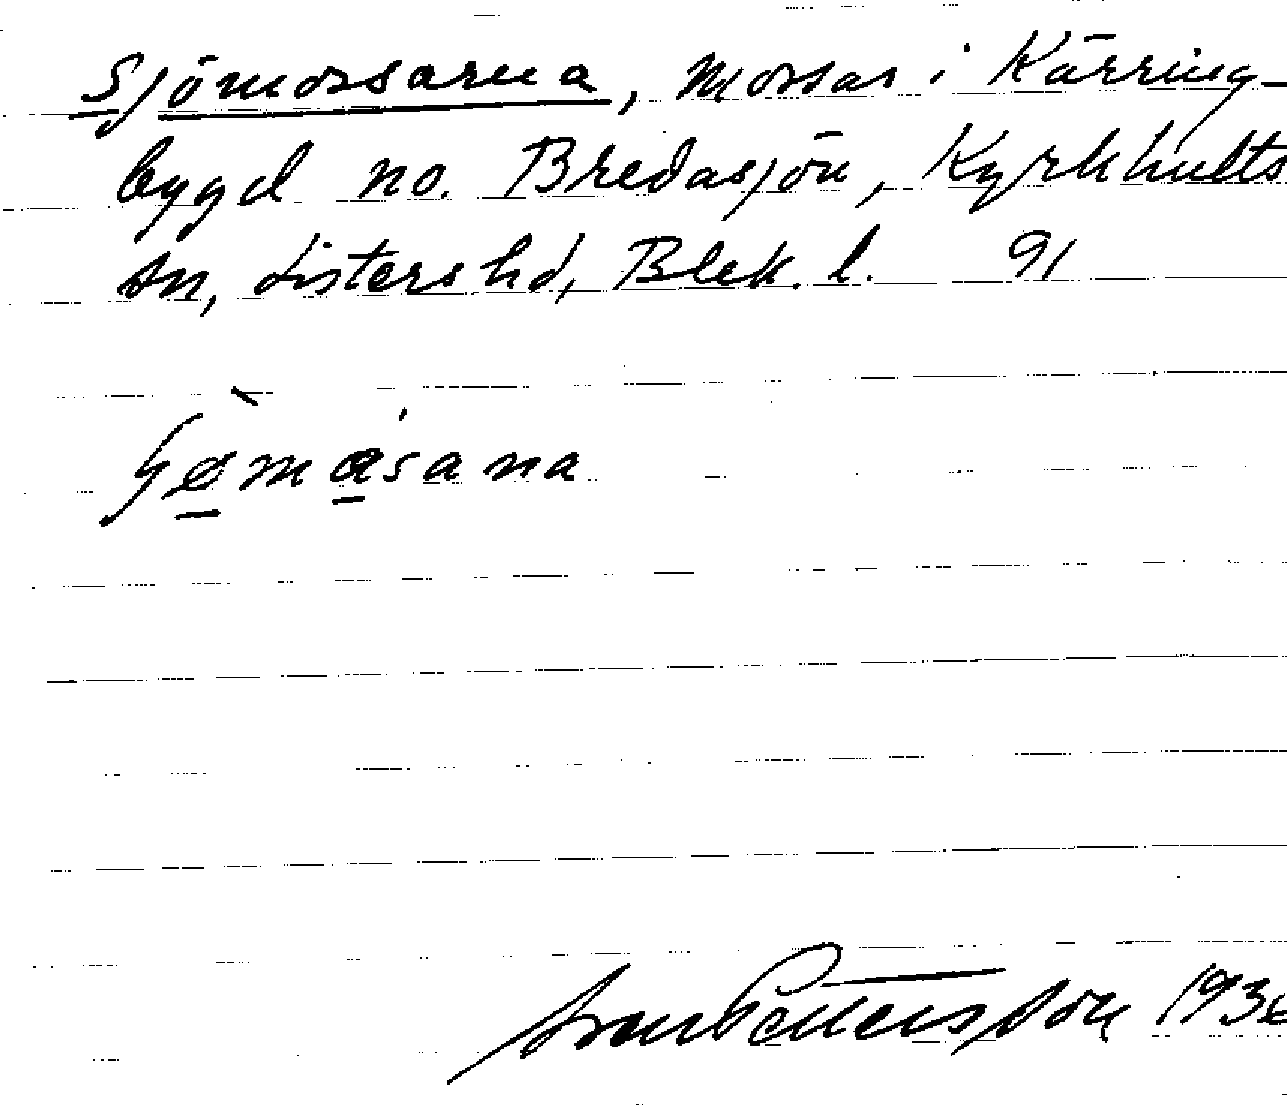 Sjömossarna, mossar i Kärring-
bygd no. Bredasjön, Kyrkhults
sn, Listers hd, Blek. l. 91
Pettersson